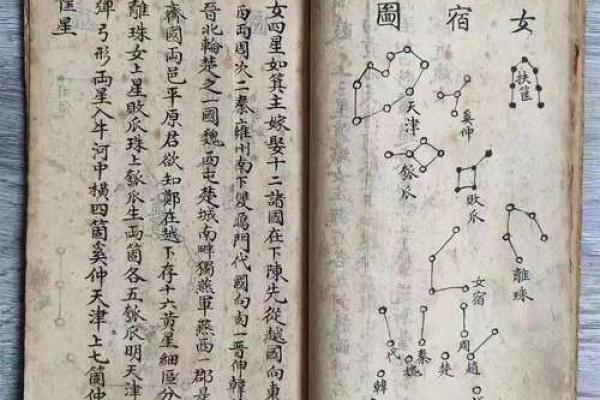 女四星如箕主嫁娶十二諸國在下陳先從越國向東
西两周次二秦雍州南下雙鴈門代國向南一晋伸韓
晋北輪楚之一國魏西屯楚城南畔獨燕軍燕西一郡是
齊國两邑平原君欲知鄭在越下存十六黃星細區分
離珠女上星敗瓜珠上瓠瓜生两箇各五瓠瓜明天津
彈弓形两星入牛河中橫四箇奚仲天津上七箇仲
筐星
女宿圖
扶筐
天津
奚仲
瓠瓜
敗瓜
離珠
女宿
周
秦
代
趙
楚
魏
韓